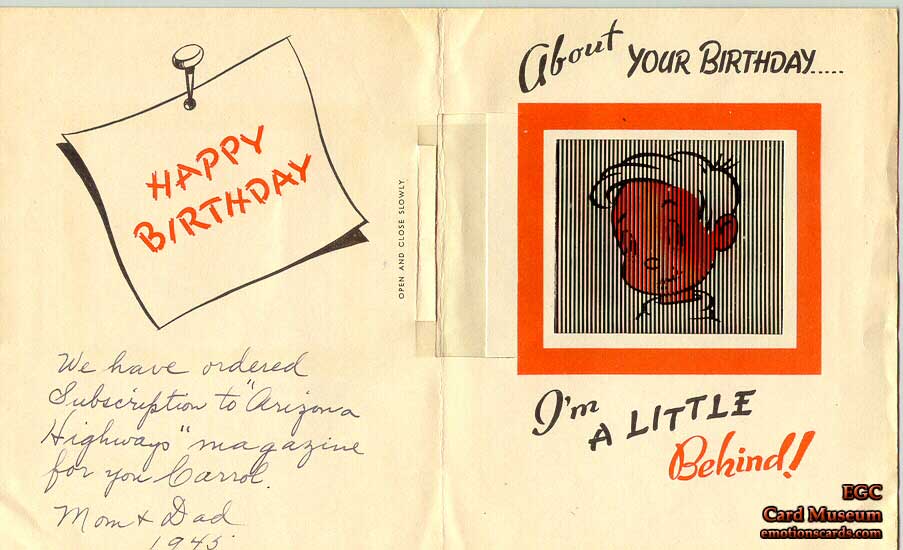 HAPPY
BIRTHDAY
We have ordered
Subscription to "Arizona
Highways" magazine
for you Carrol.
Mom & Dad
1945
OPEN AND CLOSE SLOWLY
About YOUR BIRTHDAY.....
I'm
A LITTLE
Behind!
EGC
Card Museum
emotionscards.com